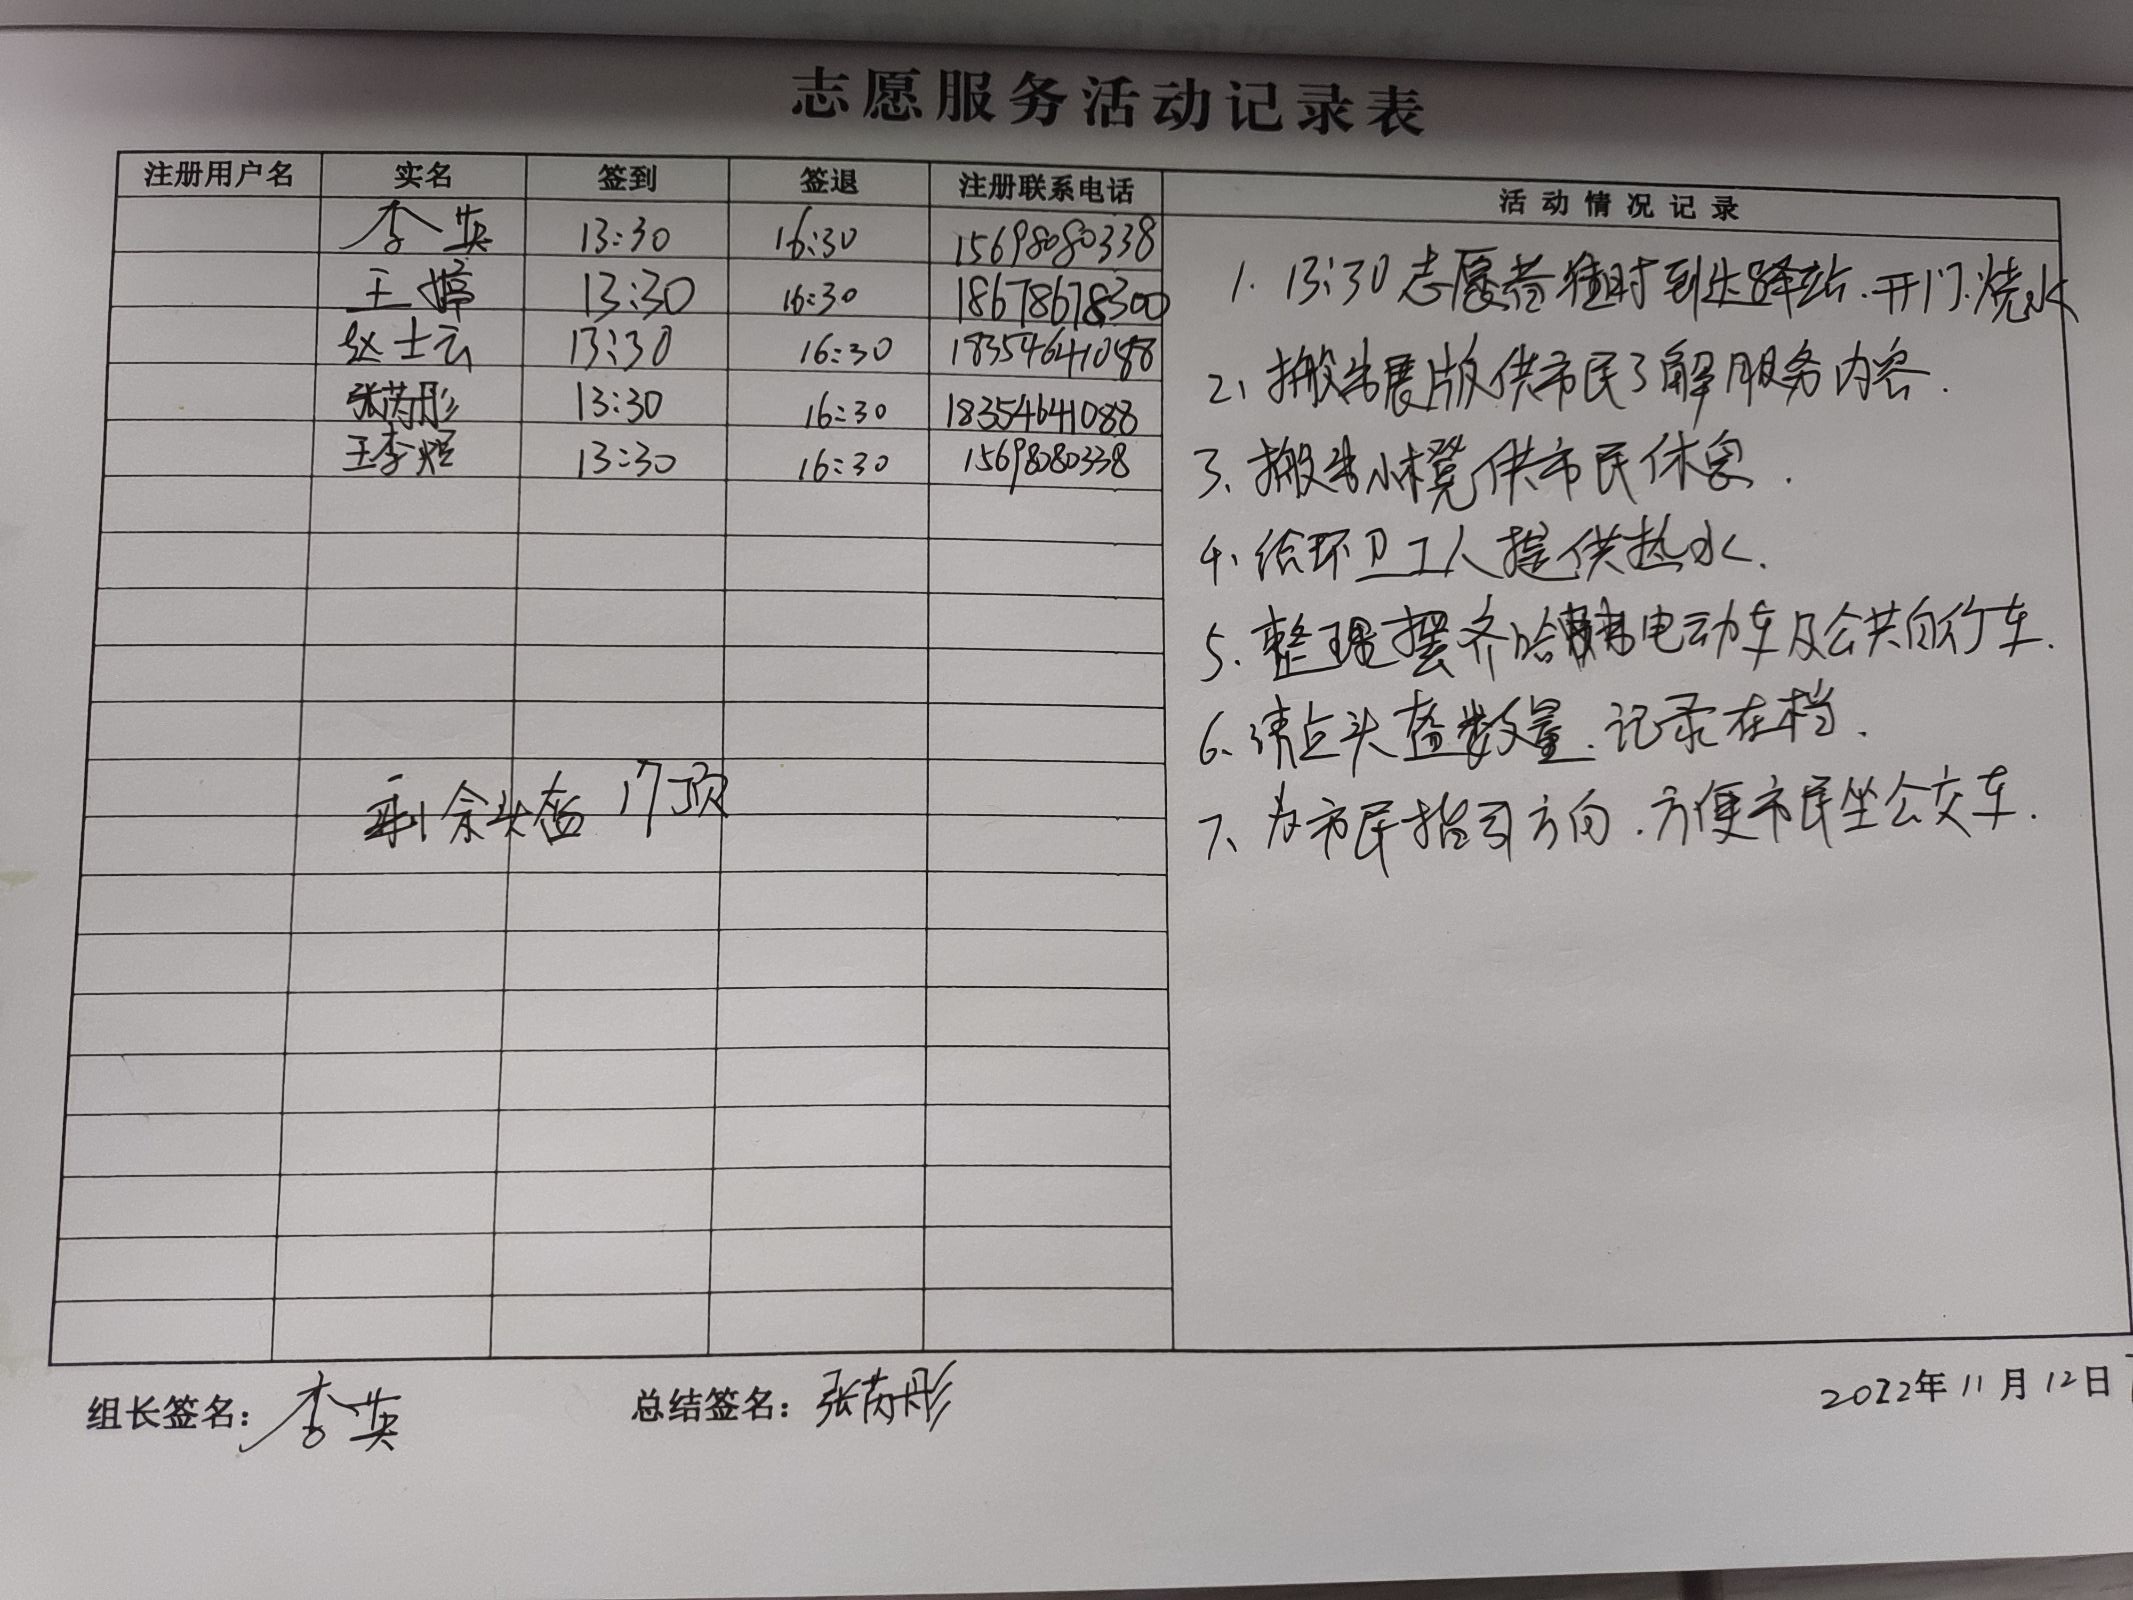 志愿服务活动记录表
注册用户名 实名 签到 签退 注册联系电话 活动情况记录
李英 13:30 16:30 15698080338
王婷 13:30 16:30 18678678300
赵士云 13:30 16:30 18354641088
张芮彤 13:30 16:30 18354641088
王李煜 13:30 16:30 15698080338
剩余头盔 17顶
1. 13:30志愿者准时到达驿站.开门.烧水
2、搬出展版供市民了解服务内容.
3、搬出小櫈供市民休息.
4、给环卫工人提供热水.
5、整理摆齐哈电动车及公共自行车.
6、清点头盔数量.记录在档.
7、为市民指引方向.方便市民坐公交车.
组长签名：李英 总结签名：张芮彤 2022年11月12日